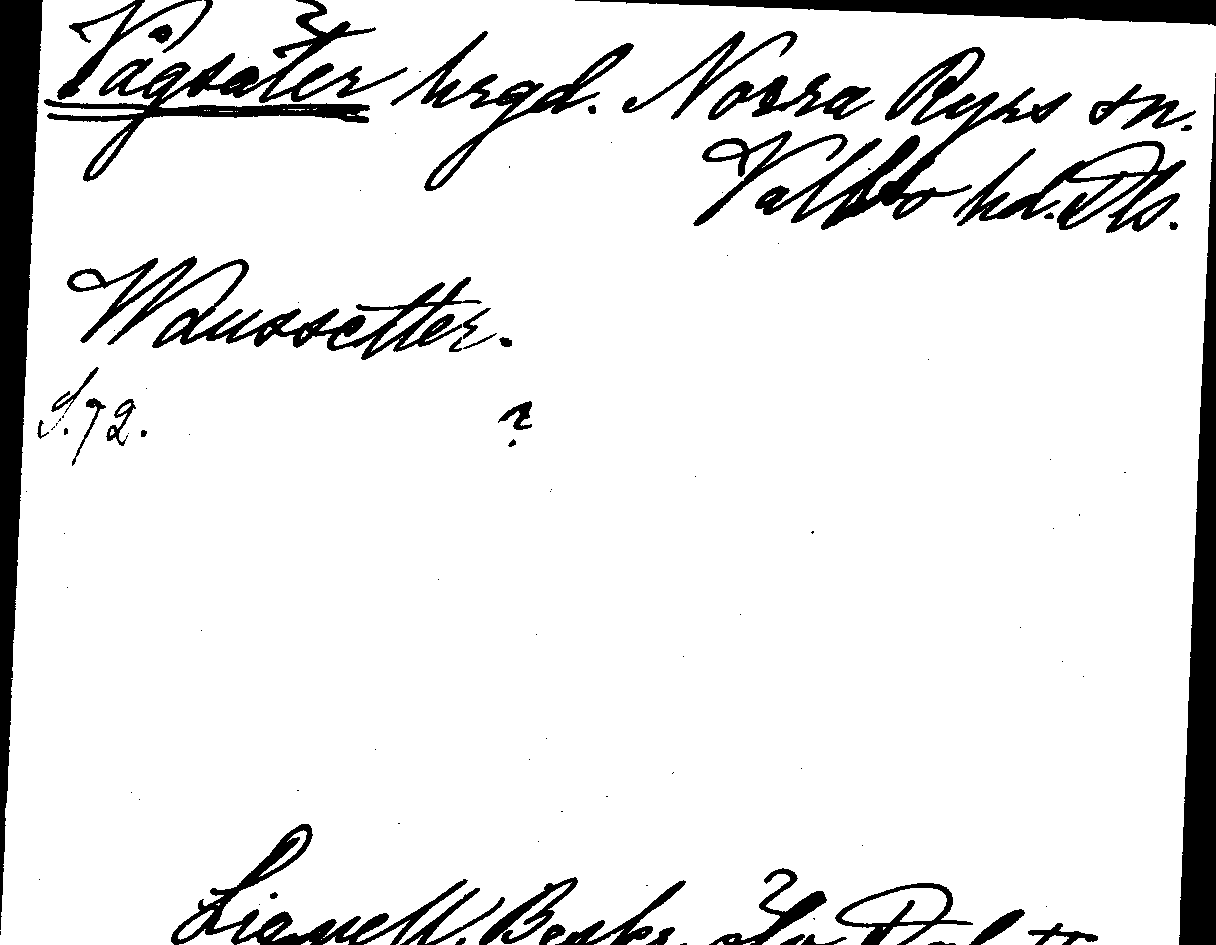 Vågsäter hrgd. Norra Ryrs sn.
Valbo hd. Dls.
Waussetter.
S. 72. ?
Lignell, Beskr. Dal